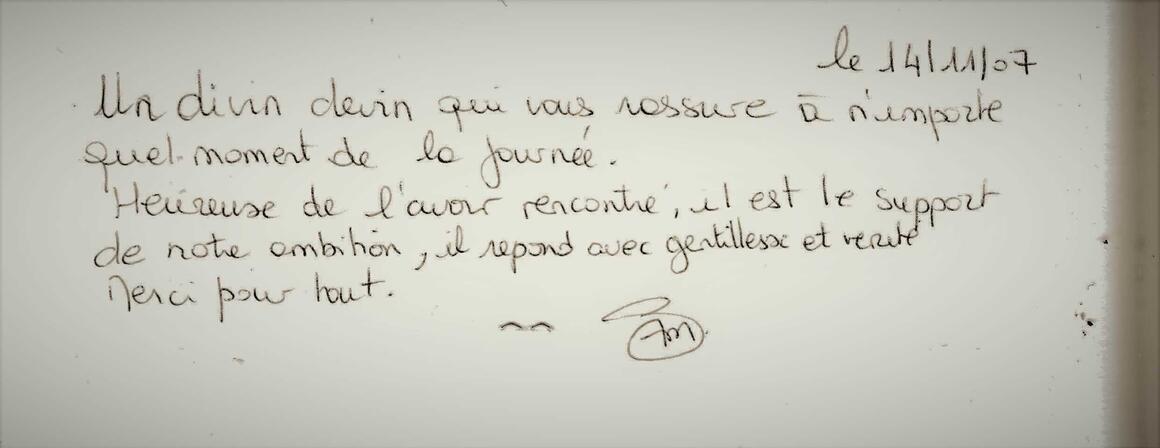 le 14/11/07
Un divin devin qui vous rassure à n'importe
quel moment de la journée.
Heureuse de l'avoir rencontré, il est le support
de notre ambition, il repond avec gentillesse et verité
Merci pour tout.